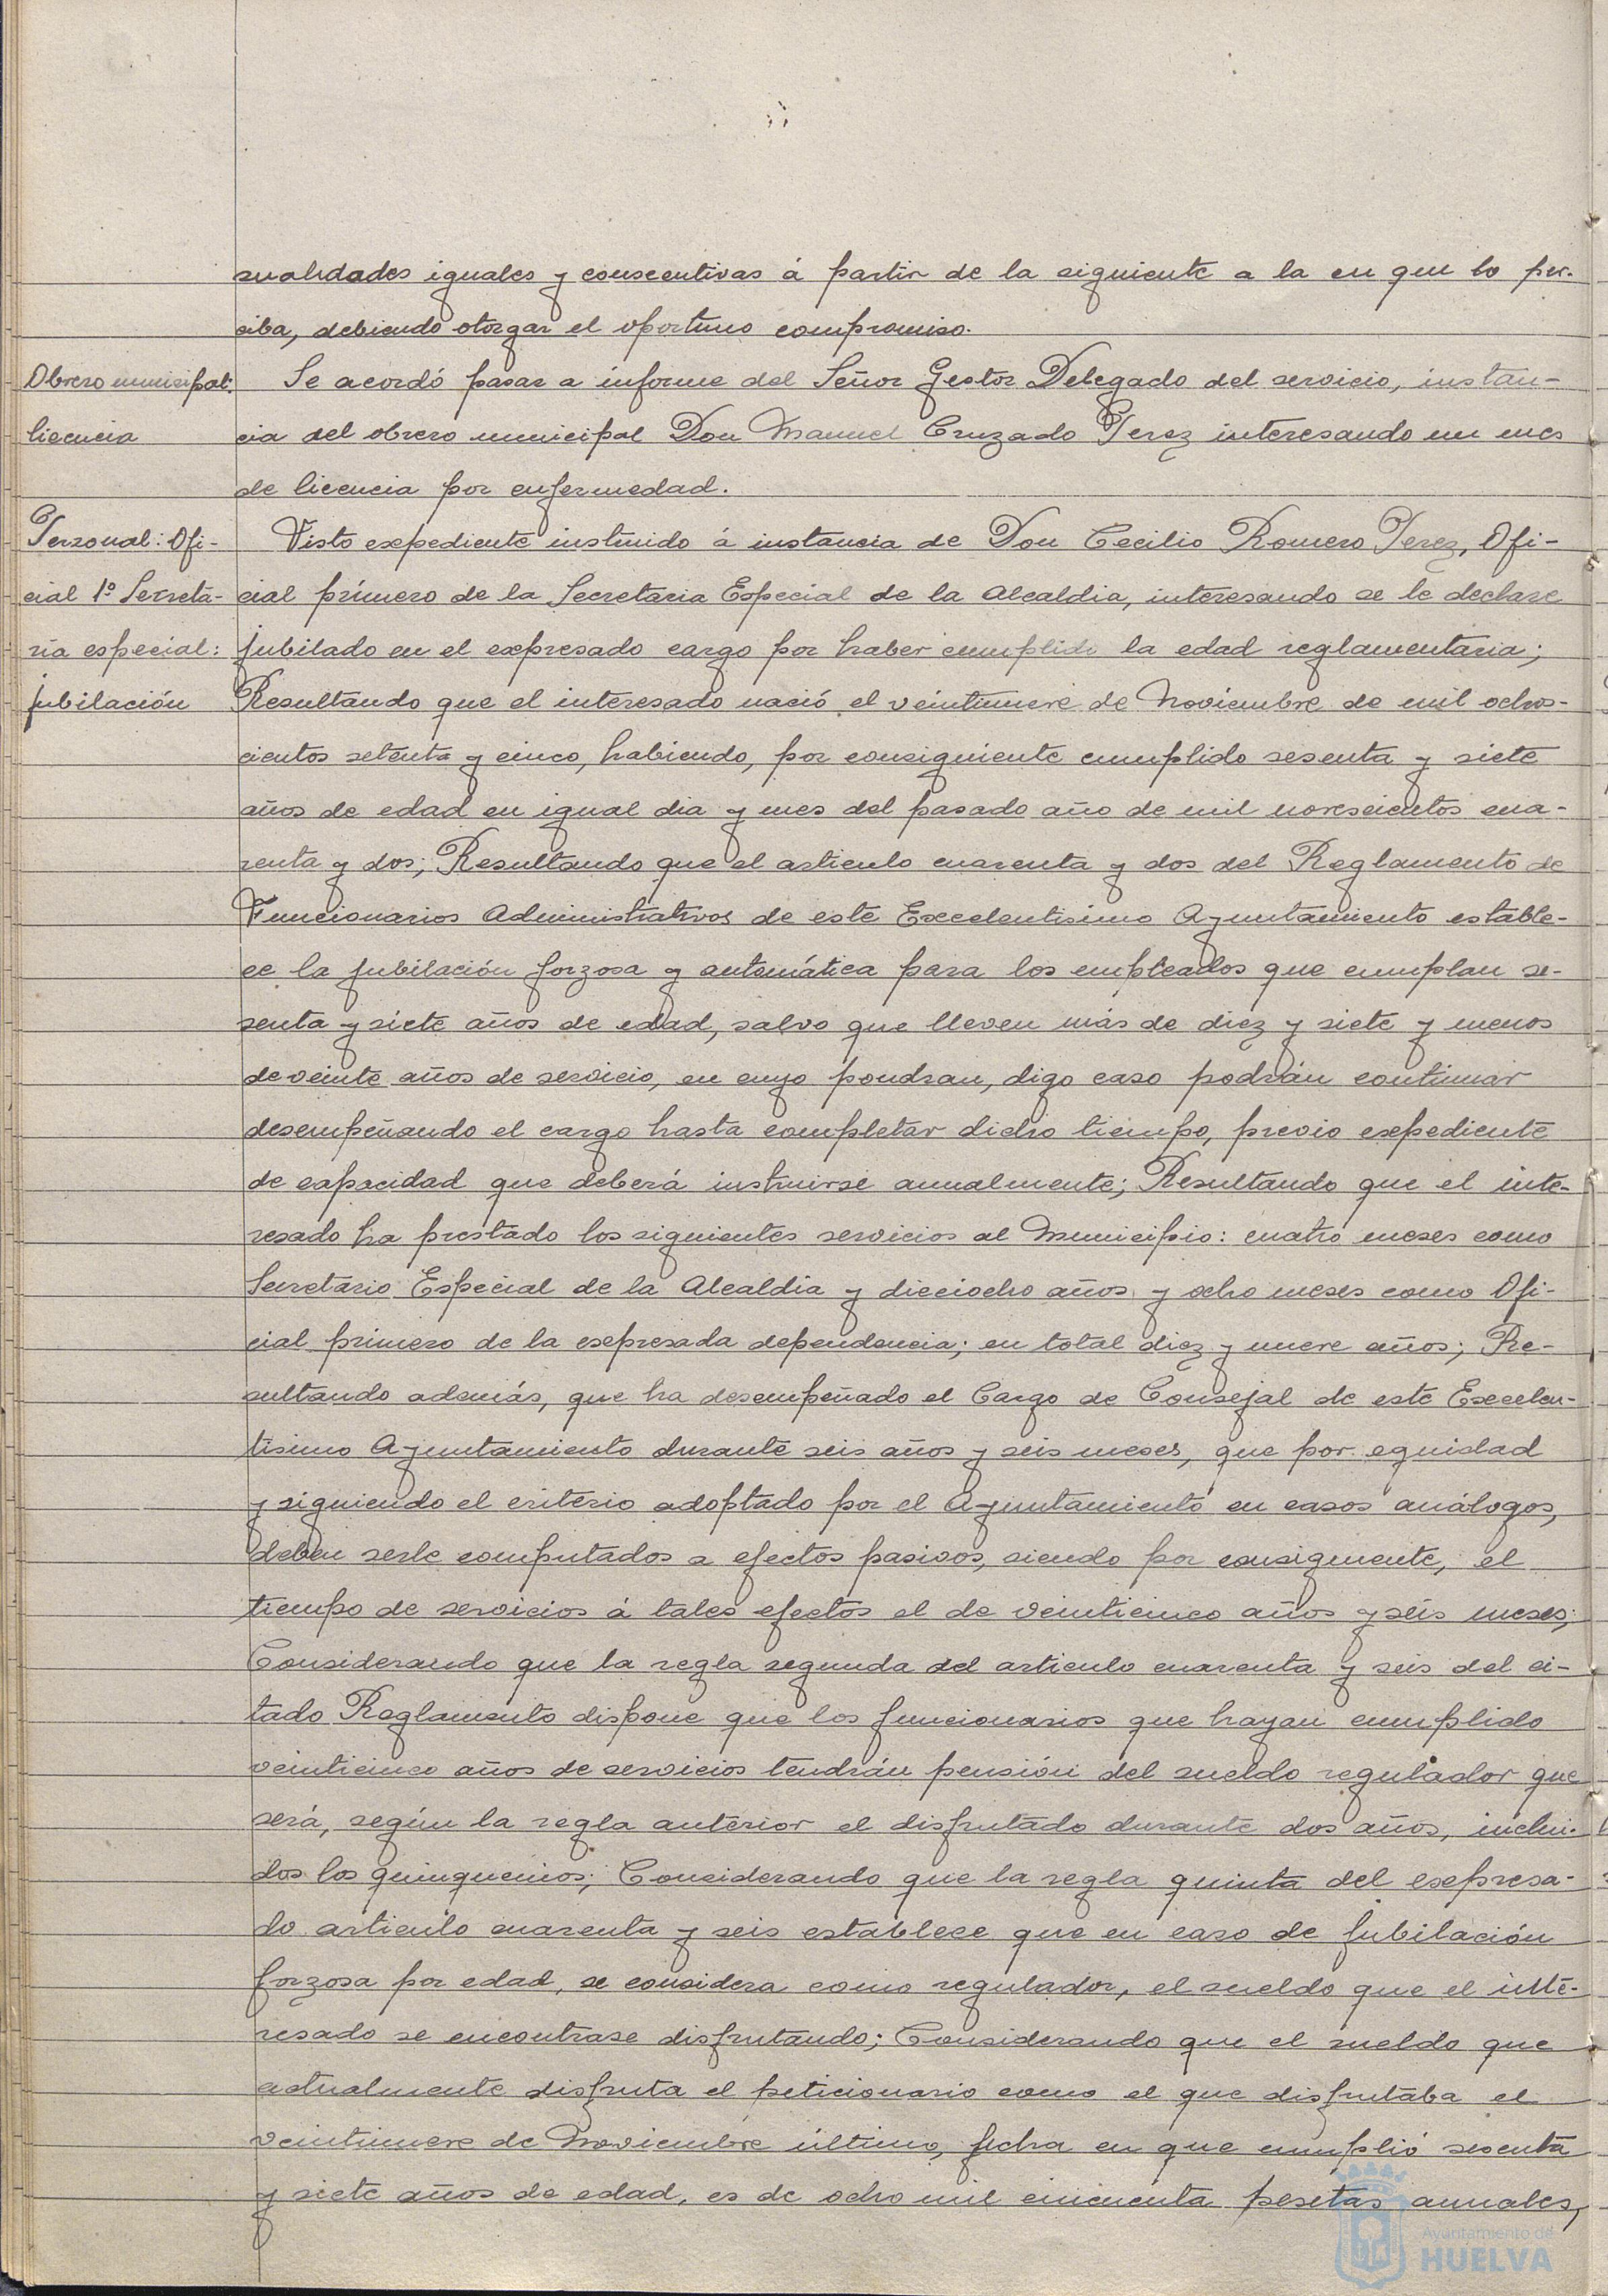 sualidades iguales y consecutivas á partir de la siguiente a la en que lo per-
ciba, debiendo otorgar el oportuno compromiso.
Obrero municipal:
licencia
Se acordó pasar a informe del Señor Gestor Delegado del servicio, instan-
cia del obrero municipal Don Manuel Cruzado Perez interesando un mes
de licencia por enfermedad.
Personal: Ofi-
cial 1º Secreta-
ria especial:
jubilación
Visto expediente instruido á instancia de Don Cecilio Romero Perez, Ofi-
cial primero de la Secretaria Especial de la Alcaldia, interesando se le declare
jubilado en el expresado cargo por haber cumplido la edad reglamentaria;
Resultando que el interesado nació el veintinueve de Noviembre de mil ochos-
cientos setenta y cinco, habiendo, por consiguiente cumplido sesenta y siete
años de edad en igual dia y mes del pasado año de mil novescientos cua-
renta y dos; Resultando que el articulo cuarenta y dos del Reglamento de
Funcionarios Administrativos de este Excelentisimo Ayuntamiento estable-
ce la jubilación forzosa y automática para los empleados que cumplan se-
senta y siete años de edad, salvo que lleven más de diez y siete y menos
de veinte años de servicio, en cuyo pondran, digo caso podrán continuar
desempeñando el cargo hasta completar dicho tiempo, previo expediente
de capacidad que deberá instruirse anualmente; Resultando que el inte-
resado ha prestado los siguientes servicios al Municipio: cuatro meses como
Secretario Especial de la Alcaldia y dieciocho años y ocho meses como Ofi-
cial primero de la expresada dependencia; en total diez y nueve años; Re-
sultando además, que ha desempeñado el Cargo de Consejal de este Excelen-
tisimo Ayuntamiento durante seis años y seis meses, que por equidad
y siguiendo el criterio adoptado por el Ayuntamiento en casos análogos,
deben serle computados a efectos pasivos, siendo por consiguiente, el
tiempo de servicios á tales efectos el de veinticinco años y seis meses;
Considerando que la regla segunda del articulo cuarenta y seis del ci-
tado Reglamento dispone que los funcionarios que hayan cumplido
veinticinco años de servicios tendrán pensión del sueldo regulador que
será, según la regla anterior el disfrutado durante dos años, inclui-
dos los quinquenios; Considerando que la regla quinta del expresa-
do articulo cuarenta y seis establece que en caso de jubilación
forzosa por edad, se considera como regulador, el sueldo que el inte-
resado se encontrase disfrutando; Considerando que el sueldo que
actualmente disfruta el peticionario como el que disfrutaba el
veintinueve de Noviembre último, fecha en que cumplió sesenta
y siete años de edad, es de ocho mil cincuenta pesetas anuales,
Ayuntamiento de
HUELVA